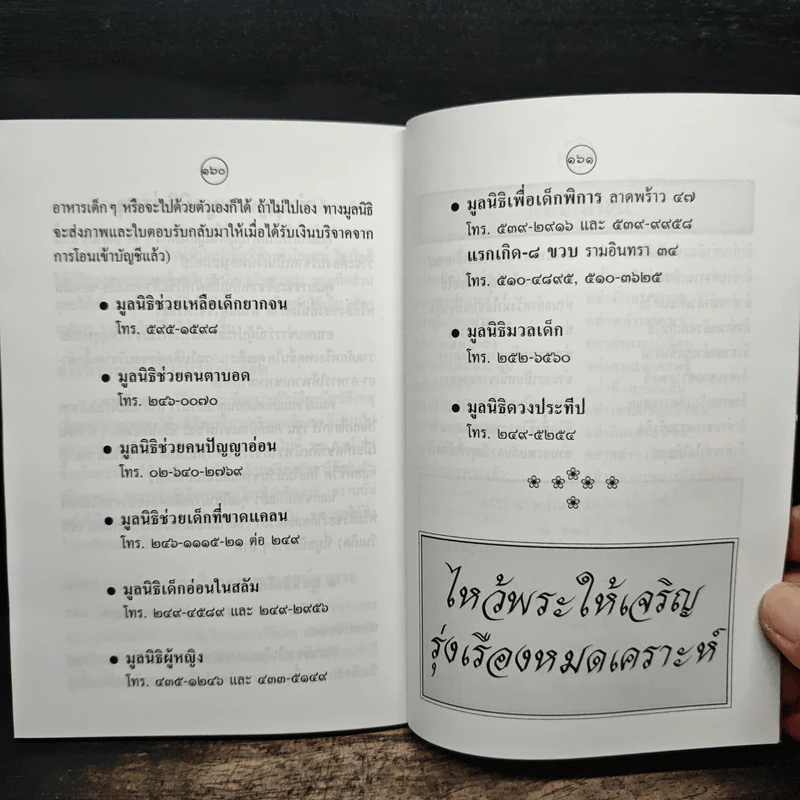 ๑๖๐
อาหารเด็กๆ หรือจะไปด้วยตัวเองก็ได้ ถ้าไม่ไปเอง ทางมูลนิธิ
จะส่งภาพและใบตอบรับกลับมาให้เมื่อได้รับเงินบริจาคจาก
การโอนเข้าบัญชีแล้ว)
● มูลนิธิช่วยเหลือเด็กยากจน
โทร. ๕๙๕-๑๕๙๘
● มูลนิธิช่วยคนตาบอด
โทร. ๒๔๖-๐๐๗๐
● มูลนิธิช่วยคนปัญญาอ่อน
โทร. ๐๒-๖๔๐-๒๗๖๙
● มูลนิธิช่วยเด็กที่ขาดแคลน
โทร. ๒๔๖-๑๑๑๕-๒๑ ต่อ ๒๔๙
● มูลนิธิเด็กอ่อนในสลัม
โทร. ๒๔๙-๔๕๘๙ และ ๒๔๙-๒๙๕๖
● มูลนิธิผู้หญิง
โทร. ๔๓๕-๑๒๔๖ และ ๔๓๓-๕๑๔๙
๑๖๑
● มูลนิธิเพื่อเด็กพิการ ลาดพร้าว ๔๗
โทร. ๕๓๙-๒๙๑๖ และ ๕๓๙-๙๙๕๘
แรกเกิด-๘ ขวบ รามอินทรา ๓๔
โทร. ๕๑๐-๔๘๙๕, ๕๑๐-๓๖๒๕
● มูลนิธิมวลเด็ก
โทร. ๒๕๒-๖๕๖๐
● มูลนิธิดวงประทีป
โทร. ๒๔๙-๕๒๕๔
ไหว้พระให้เจริญ
รุ่งเรืองหมดเคราะห์